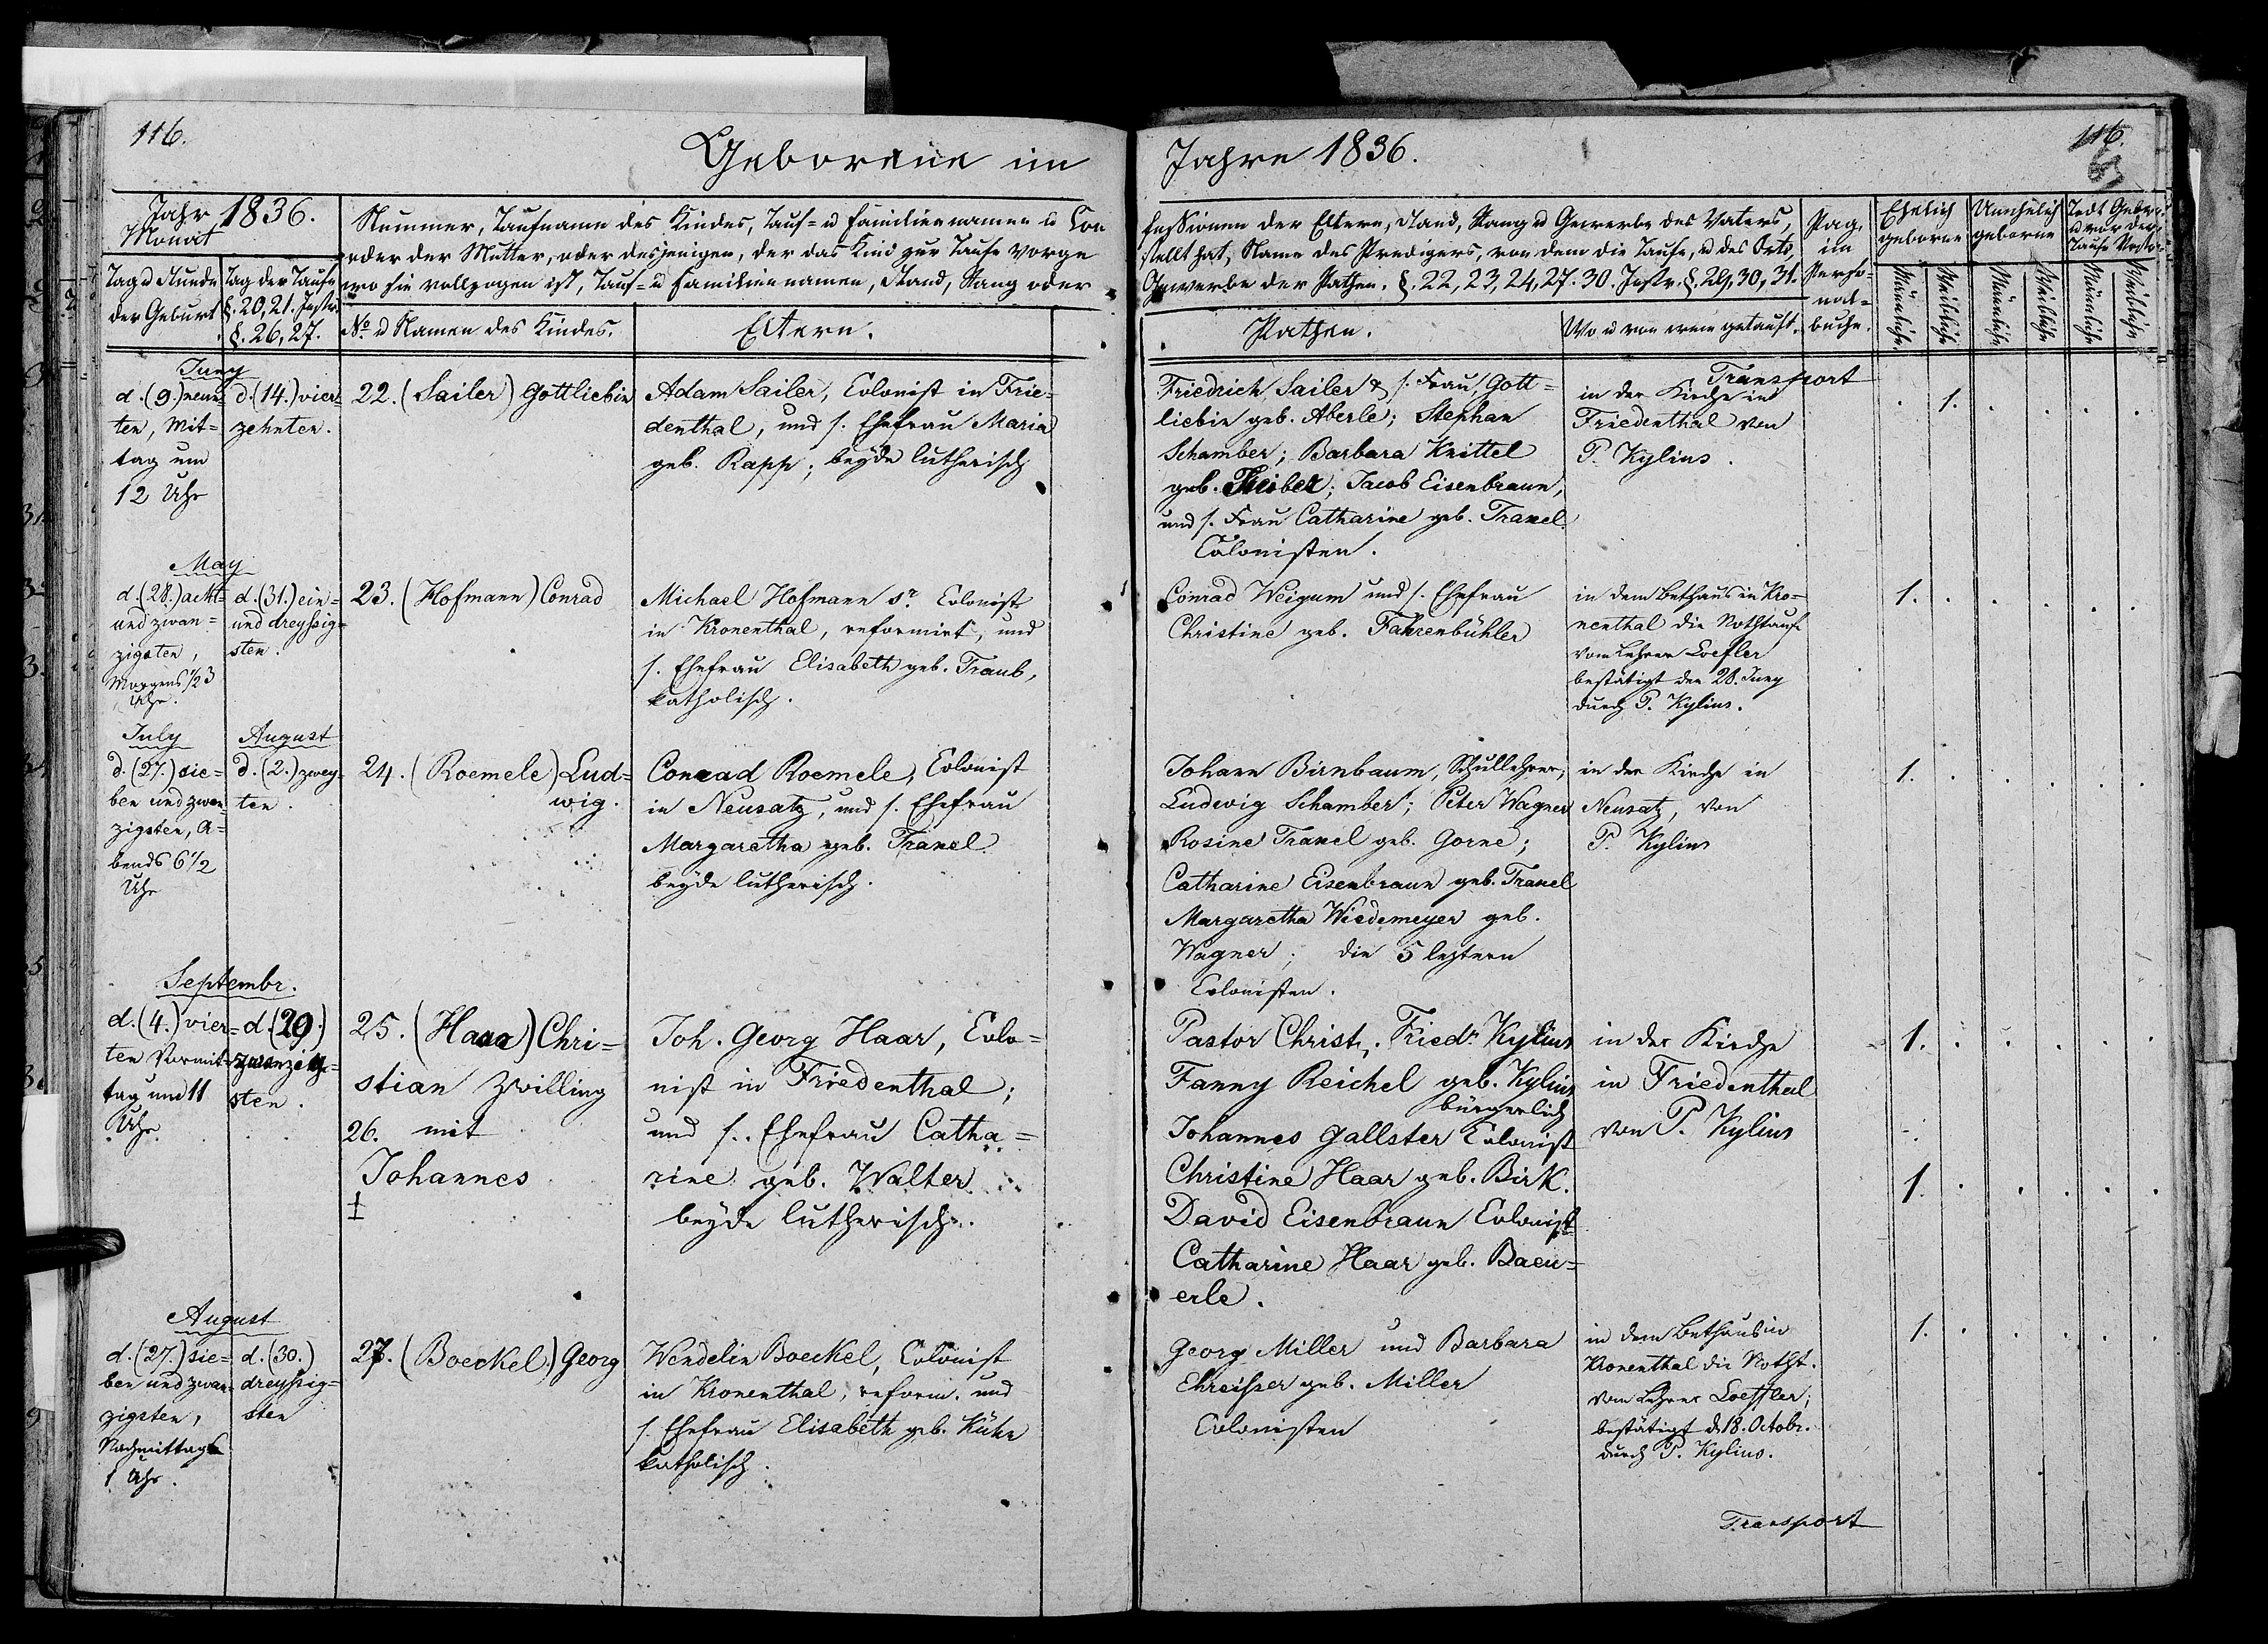 116.
Geborene im
Jahre 1836.
116.
63
Jahr 1836.
Monat
Tag u Stunde
der Geburt
Tag der Taufe
§. 20, 21. Instr.
§. 26, 27.
Nummer, Taufname des Kindes, Tauf- u Familiennamen u Con
oder der Mutter, oder desjenigen, der das Kind zur Taufe vorge
wo sie vollzogen ist, Tauf- u Familiennamen, Stand, Rang oder
No. u Namen des Kindes.
Eltern.
fessionen der Eltern, Stand, Rang u Gewerbe des Vaters,
stellt hat, Name des Predigers, von dem die Taufe, u des Orts,
Gewerbe der Pathen. §. 22, 23, 24, 27. 30. Instr. §. 29, 30, 31.
Pathen.
Wo u von wem getauft.
Pag.
im
Perso-
nal-
buche.
Ehelich
geborne
Unehelich
geborne
Todt Gebor.
u vor der
Taufe Verstor.
Männliche.
Weibliche
Männliche
Weibliche
Männliche
Weibliche
Juny
d. (9.) neun-
ten, Mit-
tag um
12 Uhr
d. (14.) vier-
zehnten.
22. (Sailer) Gottliebin
Adam Sailer, Colonist in Frie-
denthal, und s. Ehefrau Maria
geb. Rapp; beyde lutherisch
Friedrich Sailer & s. Frau Gott-
liebin geb. Aberle; Stephan
Schamber; Barbara Knittel
geb. Jacob Eisenbraun,
und s. Frau Catharine geb. Traxel
Colonisten.
Transport
in der Kirche in
Friedenthal von
P. Kylius.
1.
May
d. (28.) acht-
und zwan-
zigsten,
Morgens 1/2 3
Uhr.
d. (31.) ein-
und dreyssig-
sten.
23. (Hofmann) Conrad
Michael Hofmann sr. Colonist
in Kronenthal, reformirt, und
s. Ehefrau Elisabeth geb. Traub,
katholisch.
Conrad Weigum und s. Ehefrau
Christine geb. Fahrenbühler
in dem Bethaus in Kro-
nenthal die Nothtaufe
vom Lehrer Loefler
bestätigt den 28. Juny
durch P. Kylius.
1.
July
d. (27.) sie-
ben und zwan-
zigsten, A-
bends 6 1/2
Uhr
August
d. (2.) zwey-
ten.
24. (Roemele) Lud-
wig.
Conrad Roemele, Colonist
in Neusatz, und s. Ehefrau
Margaretha geb. Traxel
beyde lutherisch.
Johann Birnbaum, Schullehrer,
Ludwig Schamber; Peter Wagner
Rosine Traxel geb. Gorne;
Catharine Eisenbraun geb. Traxel
Margaretha Wiedemeyer geb.
Wagner; die 5 leztern
Colonisten.
in der Kirche in
Neusatz, von
P. Kylius
1.
Septembr.
d. (4.) vier-
ten Vormit-
tag um 11
Uhr.
d. (29.)
zwanzig-
sten.
25. (Haar) Chri-
stian Zwilling
26. mit
Johannes
‡
Joh. Georg Haar, Colo-
nist in Friedenthal;
und s. Ehefrau Catha-
rine geb. Walter
beyde lutherisch.
Pastor Christ. Friedr. Kylius
Fanny Reichel geb. Kylius
bürgerlich
Johannes Gallster Colonist
Christine Haar geb. Birk.
David Eisenbraun Colonist
Catharine Haar geb. Baeu-
erle.
in der Kirche
in Friedenthal
von P. Kylius
1.
1.
August
d. (27.) sie-
ben und zwan-
zigsten,
Nachmittags
1 Uhr.
d. (30.)
dreyssig-
sten
27. (Boeckel) Georg
Wendelin Boeckel, Colonist
in Kronenthal, reform. und
s. Ehefrau Elisabeth geb. Kühn
katholisch.
Georg Miller und Barbara
Ehreisser geb. Miller
Colonisten
in dem Bethaus in
Kronenthal die Notht.
vom Lehrer Loeffler;
bestätigt d. 18. Octobr.
durch P. Kylius.
1.
Transport